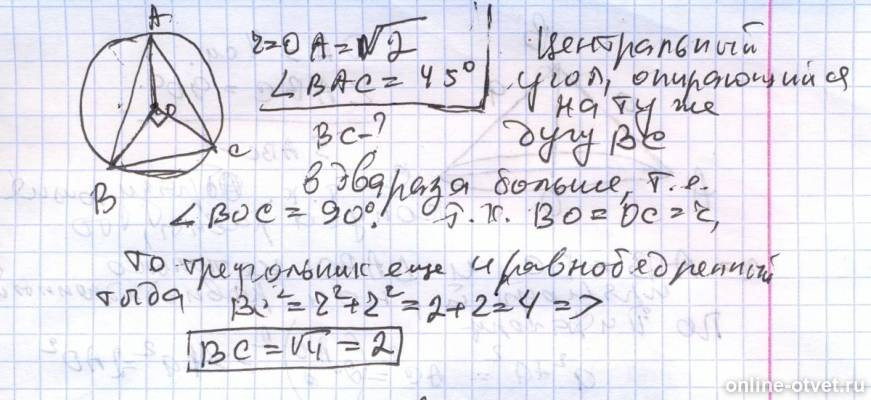 A
O
B
C
r=OA=√2
∠BAC=45°
BC-?
Центральный
угол, опирающийся
на ту же
дугу BC
в два раза больше, т.е.
∠BOC=90°. т.к. BO=OC=r,
то треугольник еще и равнобедренный
тогда BC²=r²+r²=2+2=4 =>
BC=√4=2
online-otvet.ru